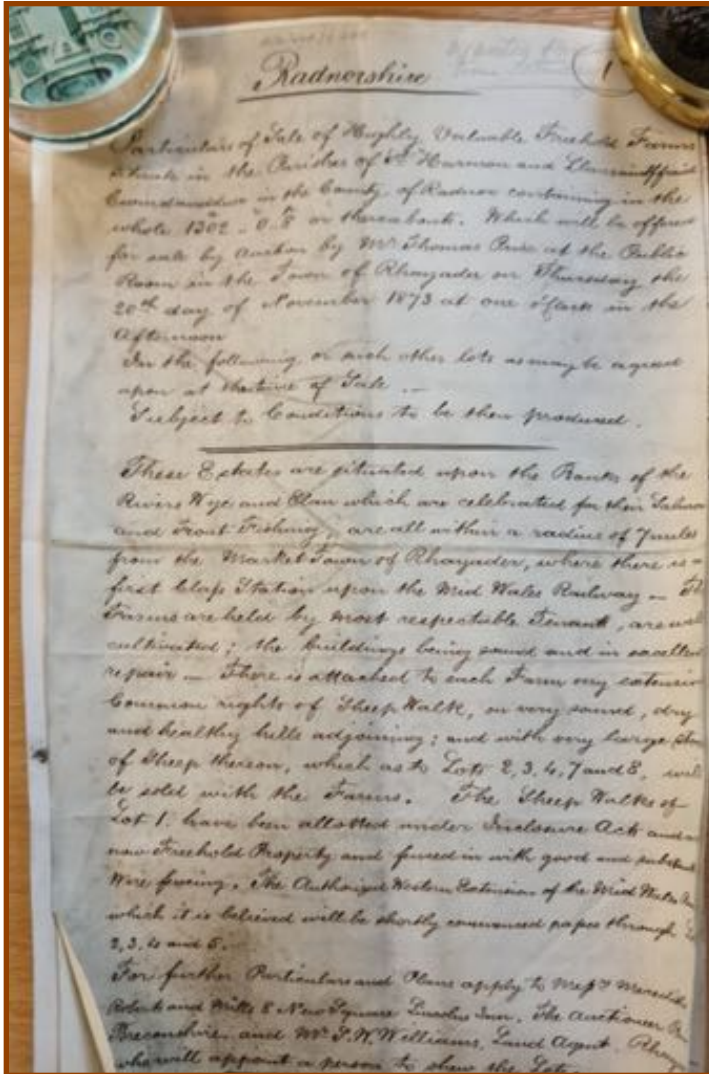 Radnorshire
1
Particulars of Sale of Highly Valuable Freehold Farms
situate in the Parishes of St Harmon and Llansaintffraid
Cwmdauddwr in the County of Radnor containing in the
whole 1302 - 0 - 8 or thereabouts. Which will be offered
for sale by Auction by Mr Thomas at the Public
Room in the Town of Rhayader on Thursday the
20th day of November 1873 at one o'Clock in the
Afternoon
In the following or such other lots as may be agreed
upon at the time of Sale. -
Subject to Conditions to be then produced.
These Estates are situated upon the Banks of the
Rivers Wye and Elan which are celebrated for their Salmon
and Trout Fishing, are all within a radius of 7 miles
from the Market Town of Rhayader, where there is a
first Class Station upon the Mid Wales Railway -
Farms are held by most respectable Tenants, are well
cultivated; the buildings being sound and in excellen
repair - There is attached to each Farm very extensiv
Common rights of Sheep Walk, on very sound, dry
and healthy hills adjoining; and with very large
of Sheep thereon, which as to Lots 2, 3, 4, 7 and 8, will
be sold with the Farms. The Sheep Walks of
Lot 1. have been allotted under Inclosure Act and
now Freehold Property and fenced in with good and substant
Wire fencing. The Authorized Western Extension of the Mid Wales
which it is believed will be shortly commenced passes through
2, 3, 4 and 5.
For further Particulars and Plans apply to Messrs Meredith
Roberts and Mills 8 New Square Lincolns Inn. The Auctioneer
Breconshire, and Mr S. W. Williams, Land Agent. Rhay
who will appoint a person to shew the Lots